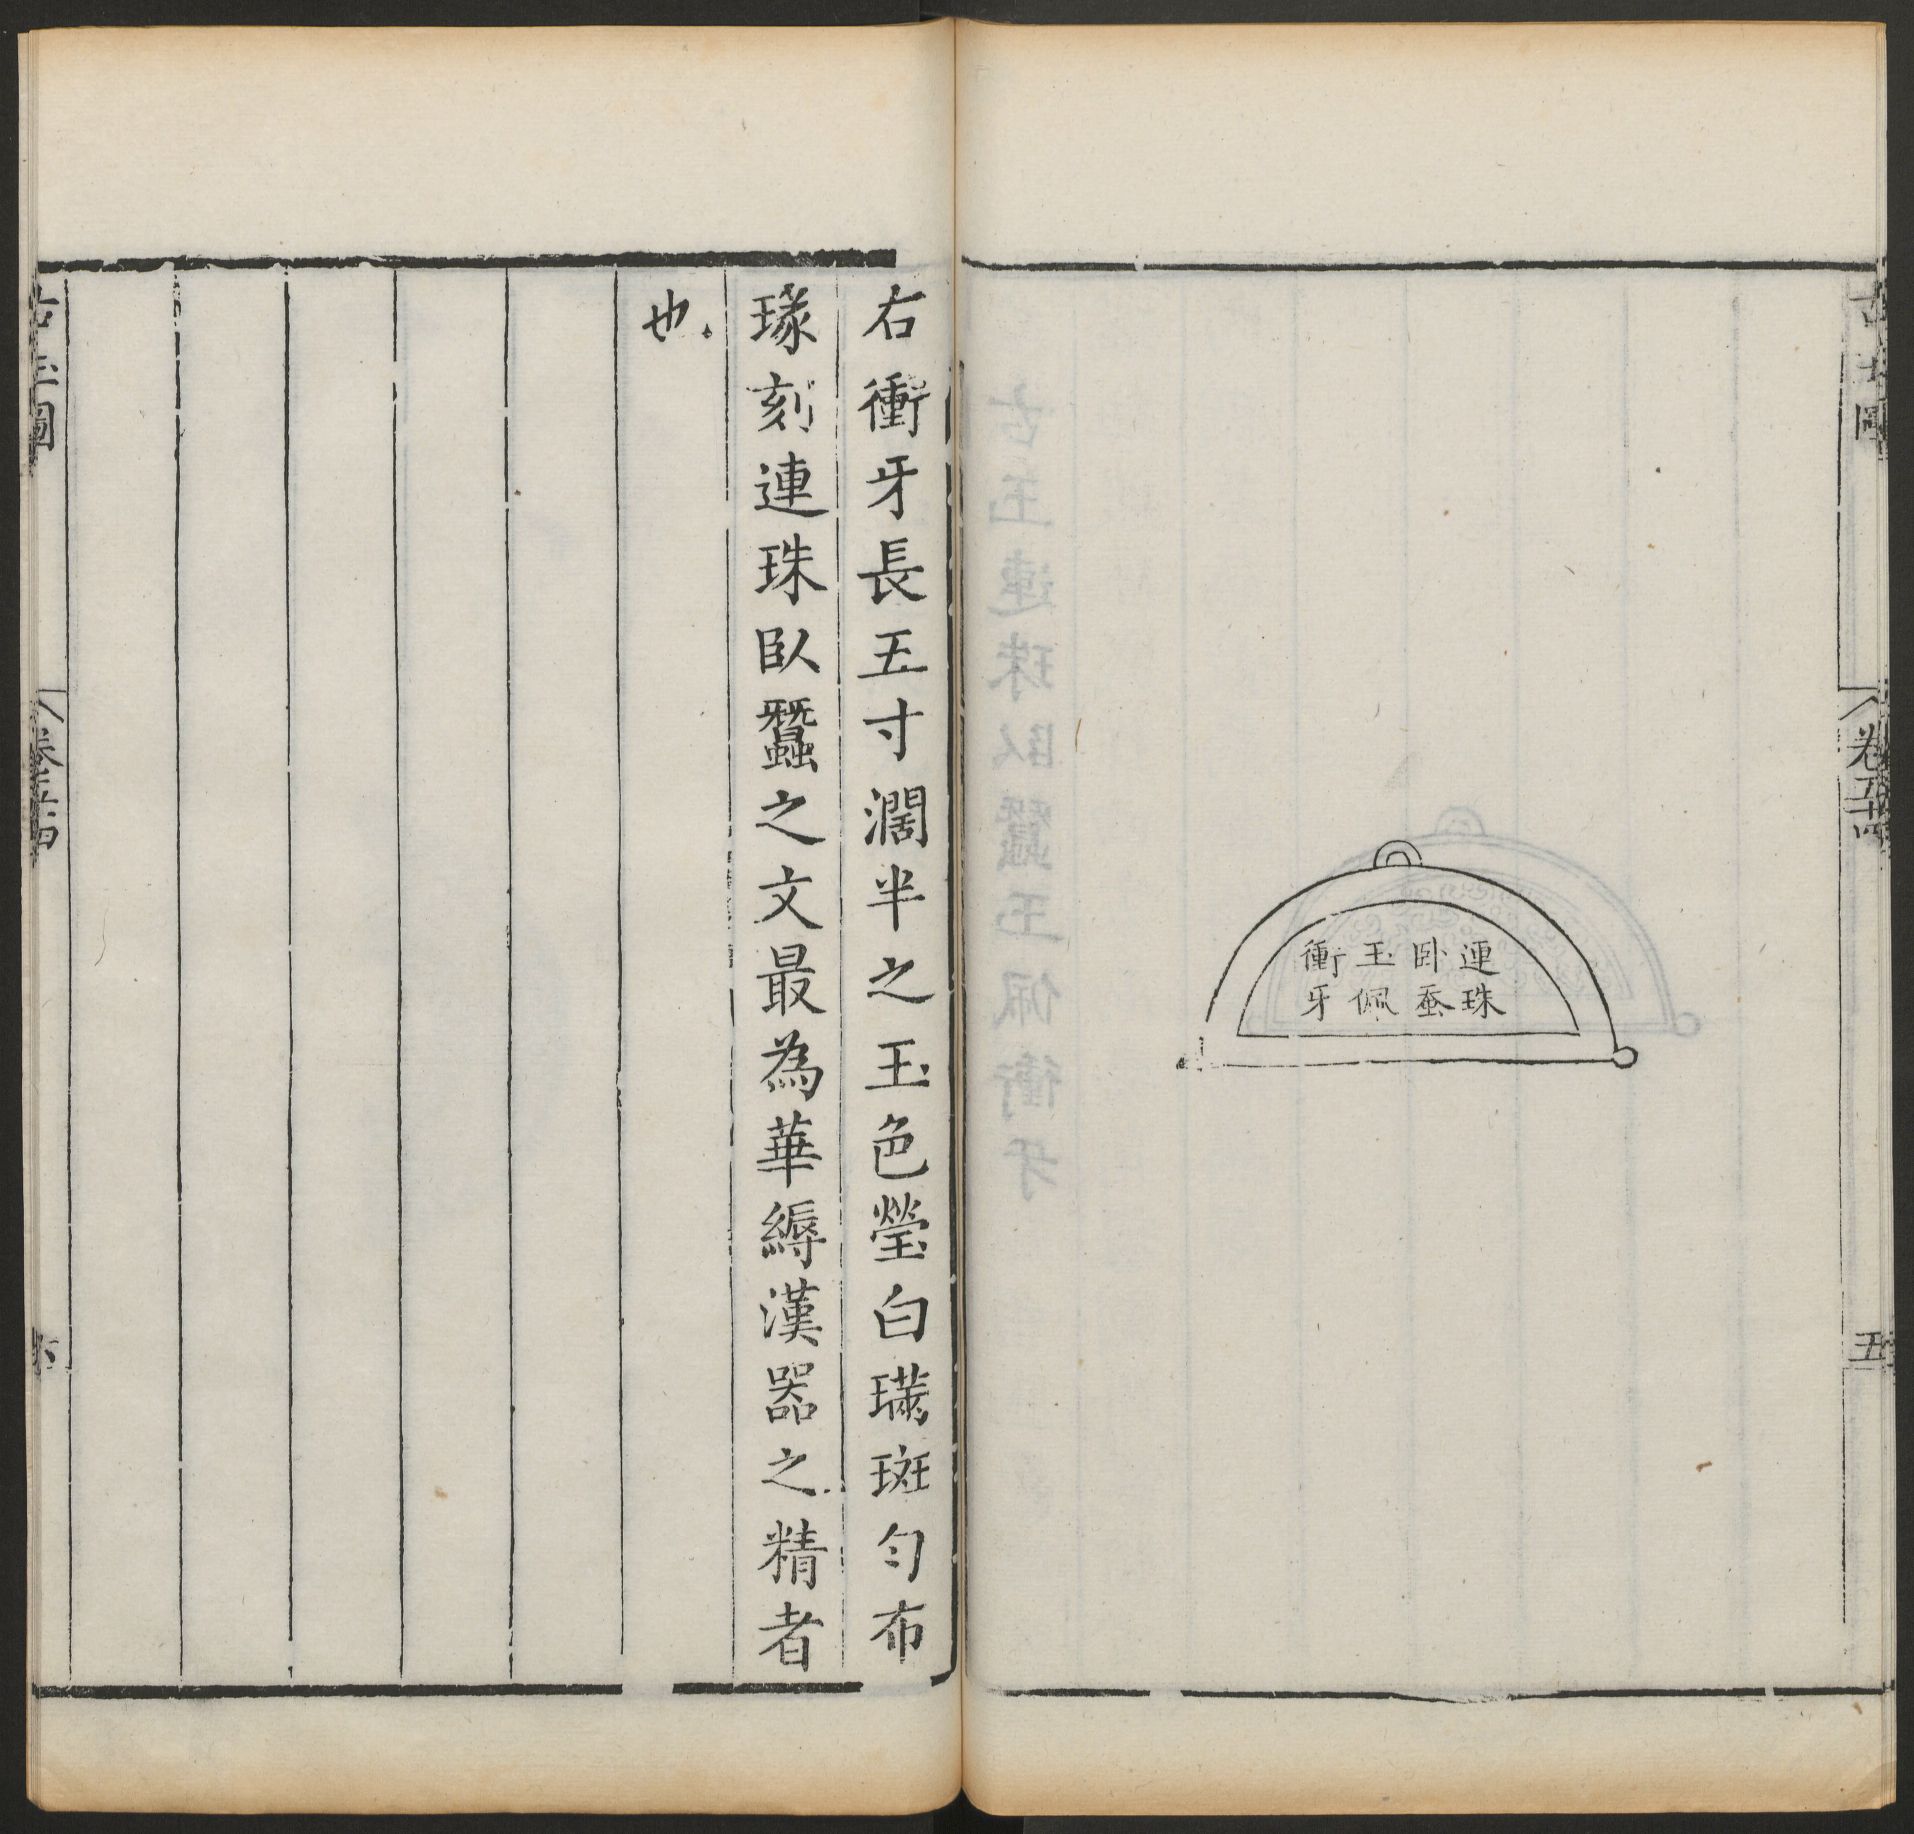 古玉圖
卷五十四
五
連珠
卧蚕
玉佩
衝牙
右衝牙長五寸濶半之玉色瑩白璊斑勻布
瑑刻連珠臥蠶之文最為華縟漢器之精者
也
古玉圖
卷五十四
六